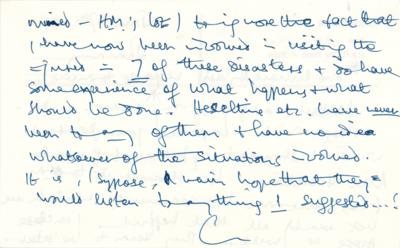 mined - H.M.'s, CoE) to ignore the fact that
I have now been involved in visiting the
injured in 7 of these disasters & do have
some experience of what happens & what
should be done. Heseltine etc. have never
been to any of them & have no idea
whatsoever of the situations involved.
It is, I suppose, a vain hope that they
would listen to anything I suggested...!
C